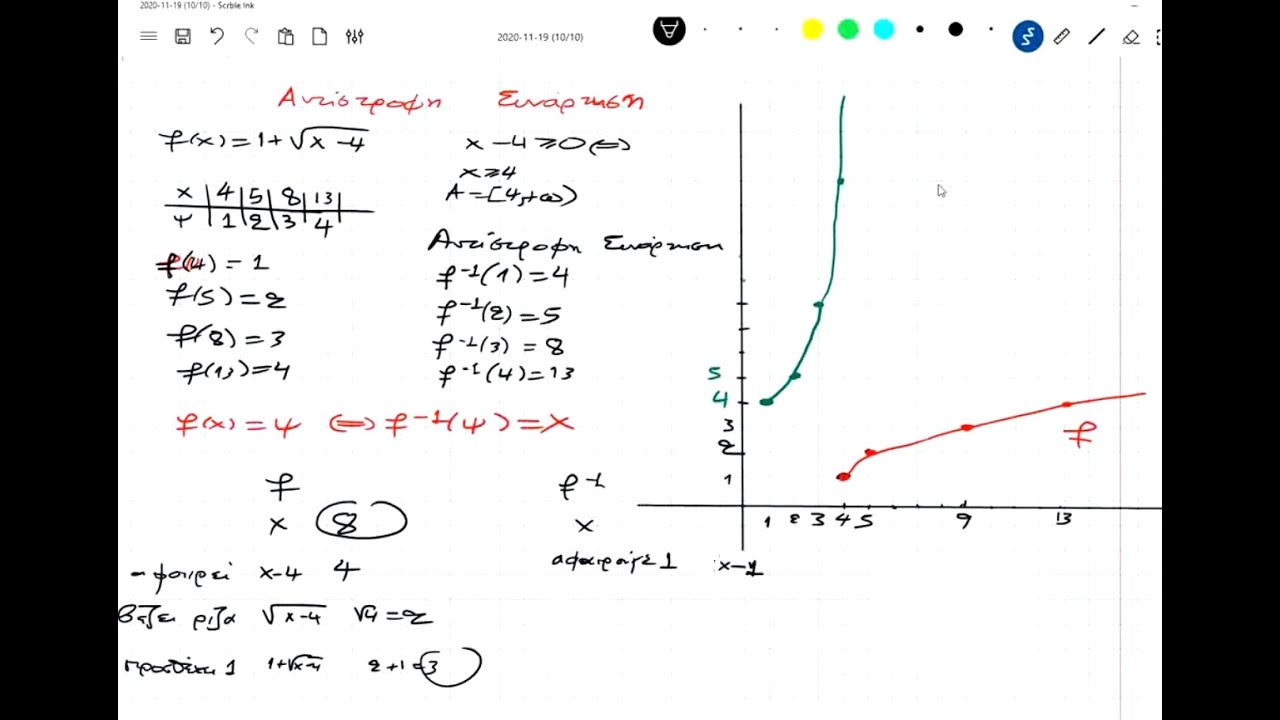 2020-11-19 (10/10) - Scrble Ink
2020-11-19 (10/10)
Αντίστροφη Συνάρτηση
f(x)=1+√x-4
x-4≥0⇔
x≥4
A=[4,+∞)
x 4 5 8 13
ψ 1 2 3 4
Αντίστροφη Συνάρτηση
f(4)=1
f⁻¹(1)=4
f(5)=2
f⁻¹(2)=5
f(8)=3
f⁻¹(3)=8
f(13)=4
f⁻¹(4)=13
f(x)=ψ ⇔ f⁻¹(ψ)=x
f f⁻¹
x 8 x
αφαιρεί x-4 4
αφαιρώ 1 x-1
βάζει ρίζα √x-4 √4=2
προσθέτει 1 1+√x-4 2+1=3
5
4
3
2
1
1 2 3 4 5 9 13
f